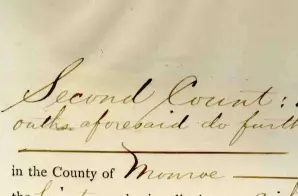 Second Count:
oaths aforesaid do furth
in the County of Monroe
the